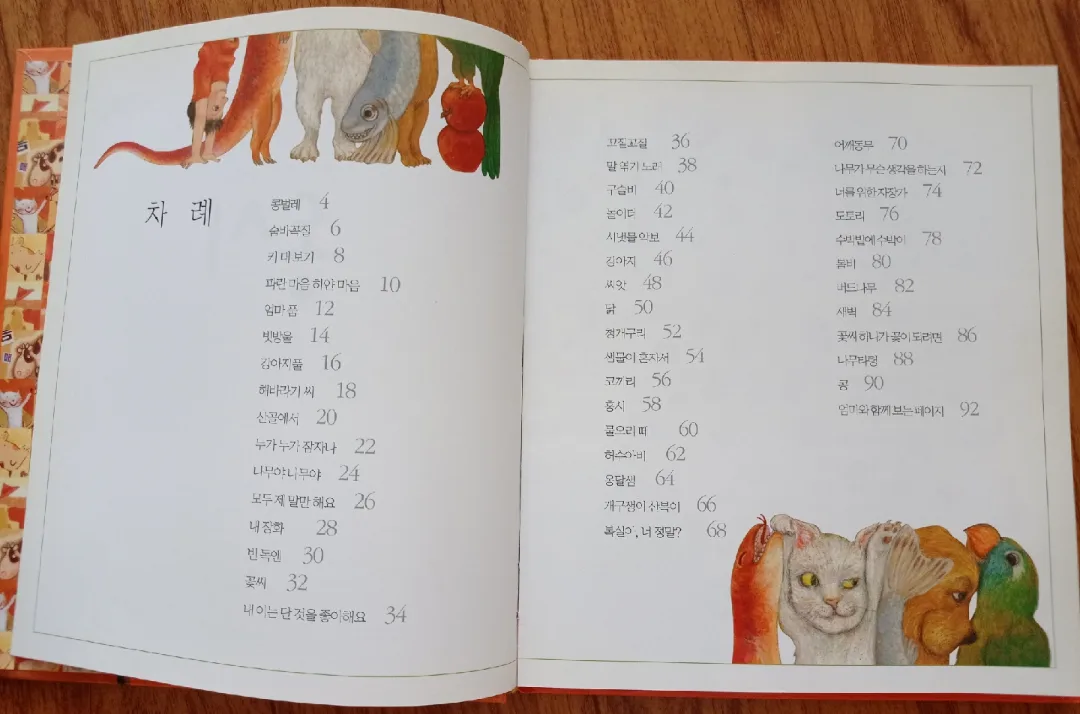 차 례
콩벌레 4
숨바꼭질 6
키 대 보기 8
파란 마음 하얀 마음 10
엄마 품 12
빗방울 14
강아지풀 16
해바라기 씨 18
산골에서 20
누가 누가 잠자나 22
나무야 나무야 24
모두 제 말만 해요 26
내 장화 28
빈 독엔 30
꽃씨 32
내 이는 단 것을 좋아해요 34
꼬질꼬질 36
말 엮기 노래 38
구슬비 40
놀이터 42
시냇물 악보 44
강아지 46
씨앗 48
닭 50
청개구리 52
샘물이 혼자서 54
코끼리 56
홍시 58
물오리 떼 60
허수아비 62
옹달샘 64
개구쟁이 산복이 66
복실아, 너 정말? 68
어깨동무 70
나무가 무슨 생각을 하는지 72
너를 위한 자장가 74
도토리 76
수박밭에 수박이 78
봄비 80
버드나무 82
새벽 84
꽃씨 하나가 꽃이 되려면 86
나무타령 88
곰 90
엄마와 함께 보는 페이지 92